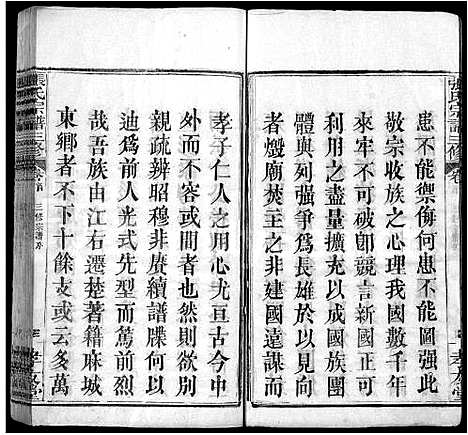 張氏宗譜三修
患不能禦侮何患不能圖強
敬宗收族之心理我國數千年
來牢不可破卽競言新國可以
利用之盡量擴充以成國族團
與列強爭爲長雄於以見向
之燬廟焚主者之非建國遠謀而
孝子仁人之用心尤亘古今中
外而不容或間者也然則欲別
親疏辨昭穆非賡續譜牒以
迪爲前人光式先型而萬
哉吾族由江右遷楚著籍麻城
東鄉者不下十餘支或云多萬
張氏宗譜三修
三修宗譜序
孝友堂